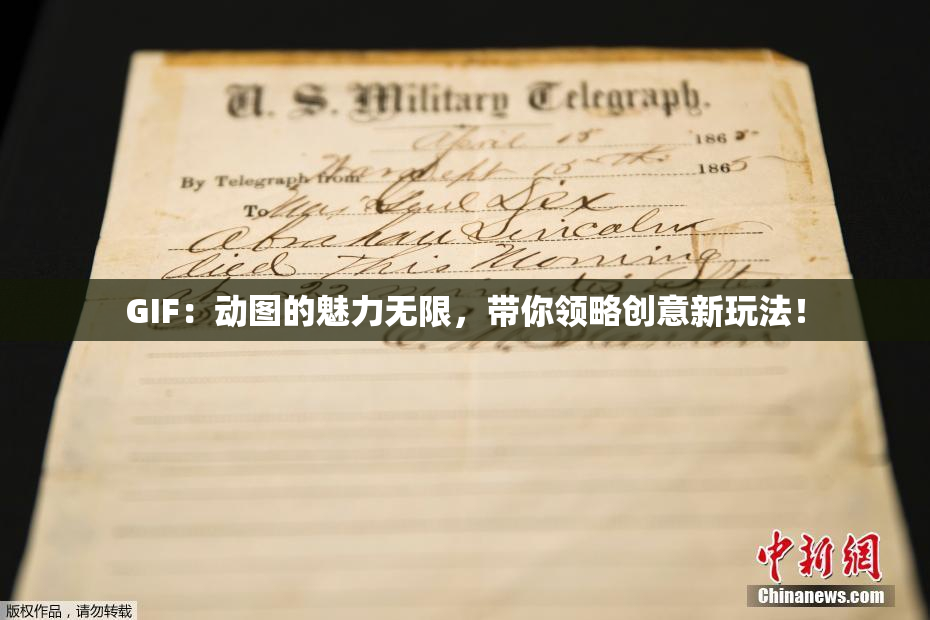 U. S. Military Telegraph.
April 15 1865
By Telegraph from War Dept 15th 1865
To Maj Genl Dix
Abraham Lincoln
died This Morning
GIF：动图的魅力无限，带你领略创意新玩法！
中新網
Chinanews.com
版权作品，请勿转载